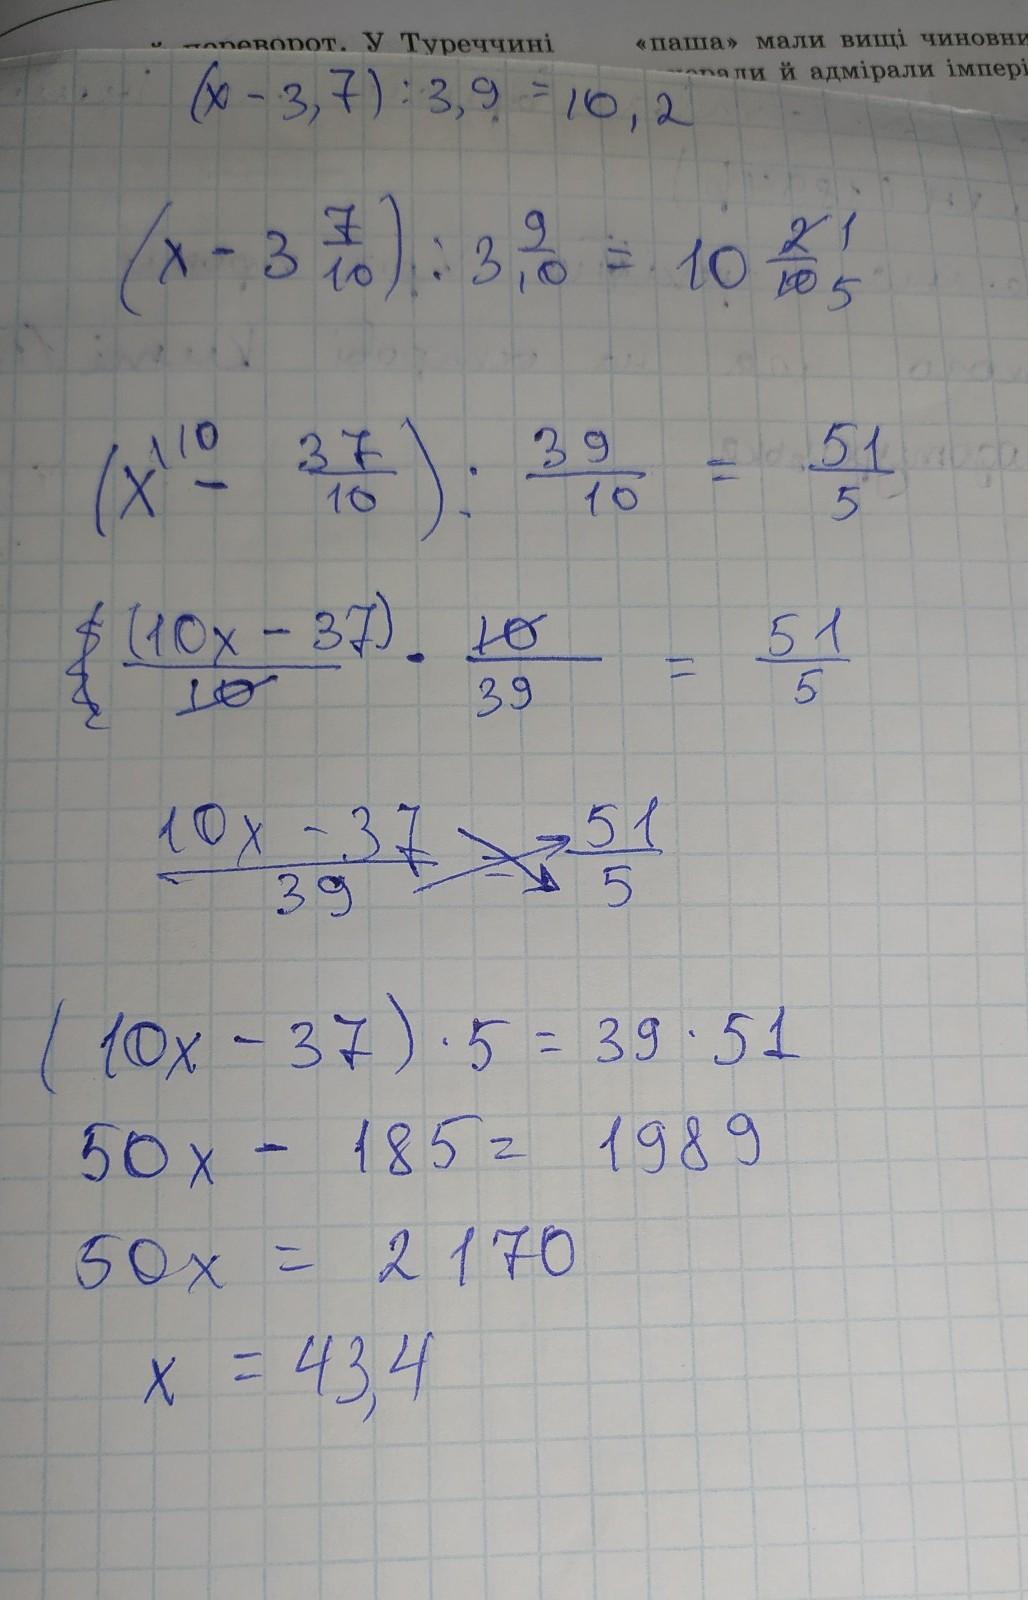 переворот. У Туреччині «паша» мали вищі
й адмірали
(x - 3,7) : 3,9 = 10,2
(x - 3 7/10) : 3 9/10 = 10 2/10 1/5
(x - 37/10) : 39/10 = 51/5
(10x - 37)/10 · 10/39 = 51/5
10x - 37/39 = 51/5
(10x - 37) · 5 = 39 · 51
50x - 185 = 1989
50x = 2170
x = 43,4